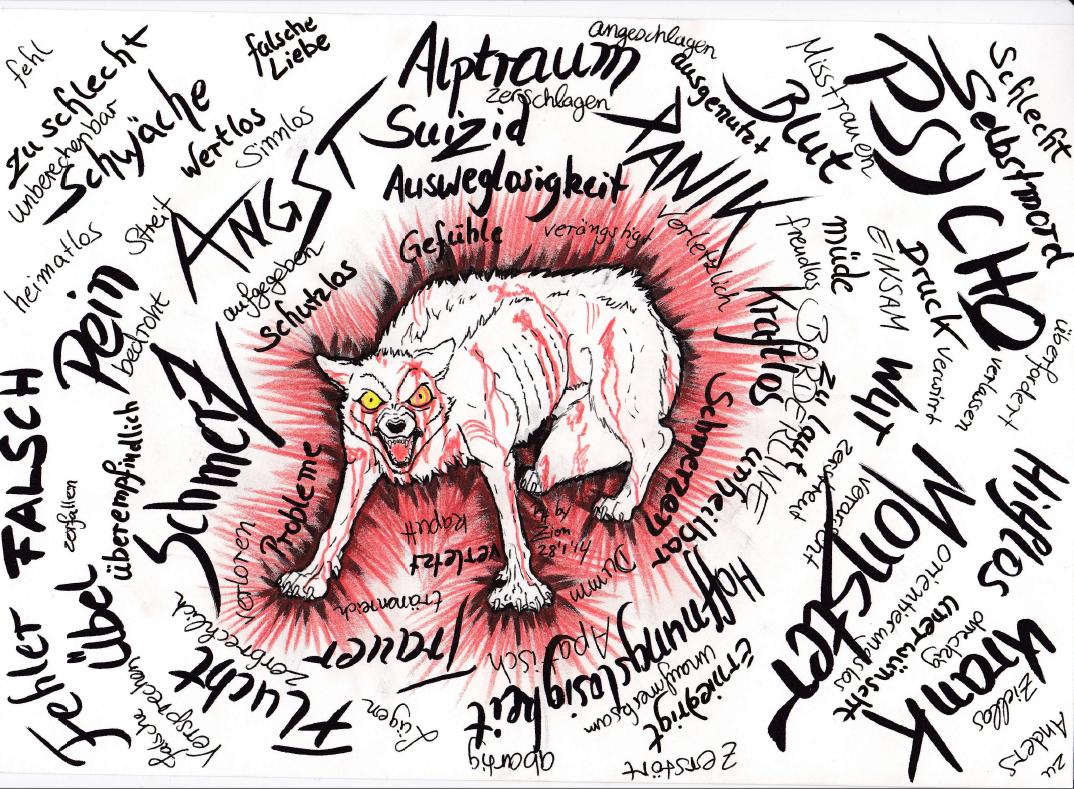 fehl
zu schlecht
unberechenbar
Schwäche
falsche
Liebe
wertlos
Sinnlos
Alptraum
angeschlagen
zerschlagen
ausgenutzt
Suizid
Ausweglosigkeit
Gefühle
verängstigt
PANIK
Verletzlich
Misstrauen
Blut
PSYCHO
Schlecht
Selbstmord
heimatlos
Streit
ANGST
aufgegeben
schutzlos
Pein
bedroht
Schmerz
FALSCH
zerfallen
überempfindlich
Probleme
Verloren
freudlos
müde
EINSAM
Druck
verwirrt
verlassen
überfordert
Kraftlos
BORDERLINE
zu laut
Wut
Schmerzen
unheilbar
zerschreit
verarscht
Monster
Hilflos
orientierungslos
unerwünscht
dreckig
Krank
Ziellos
zu
Anders
kaputt
verletzt
by
Zion
28.1.14
Dumm
tränenreich
Trauer
Apatisch
Hoffnungslosigkeit
Erniedrigt
unaufmerksam
Fehler
Übel
falsche
Versprechen
zerbrechlich
Flucht
Lügen
abartig
Zerstört